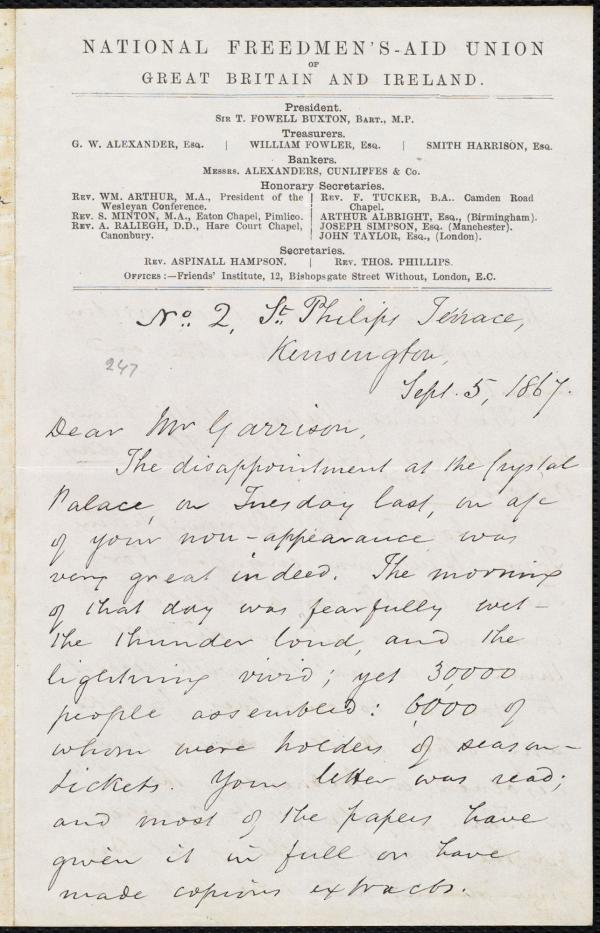 NATIONAL FREEDMEN'S-AID UNION
OF
GREAT BRITAIN AND IRELAND.
President.
SIR T. FOWELL BUXTON, BART., M.P.
Treasurers.
G. W. ALEXANDER, ESQ. | WILLIAM FOWLER, ESQ. | SMITH HARRISON, ESQ.
Bankers.
MESSRS. ALEXANDERS, CUNLIFFES & CO.
Honorary Secretaries.
REV. WM. ARTHUR, M.A., President of the Wesleyan Conference.
REV. S. MINTON, M.A., Eaton Chapel, Pimlico.
REV. A. RALIEGH, D.D., Hare Court Chapel, Canonbury.
REV. F. TUCKER, B.A.. Camden Road Chapel.
ARTHUR ALBRIGHT, ESQ., (Birmingham).
JOSEPH SIMPSON, ESQ. (Manchester).
JOHN TAYLOR, ESQ., (London).
Secretaries.
REV. ASPINALL HAMPSON. | REV. THOS. PHILLIPS.
OFFICES:—Friends' Institute, 12, Bishopsgate Street Without, London, E.C.
No. 2, St. Philips Terrace,
Kensington,
247
Sept. 5, 1867.
Dear Mr Garrison,
The disappointment at the Crystal
Palace, on Tuesday last, on a/c
of your non-appearance was
very great indeed. The morning
of that day was fearfully wet-
the thunder loud, and the
lightning vivid; yet 30,000
people assembled: 6,000 of
whom were holders of season-
tickets. Your letter was read;
and most of the papers have
given it in full or have
made copious extracts.